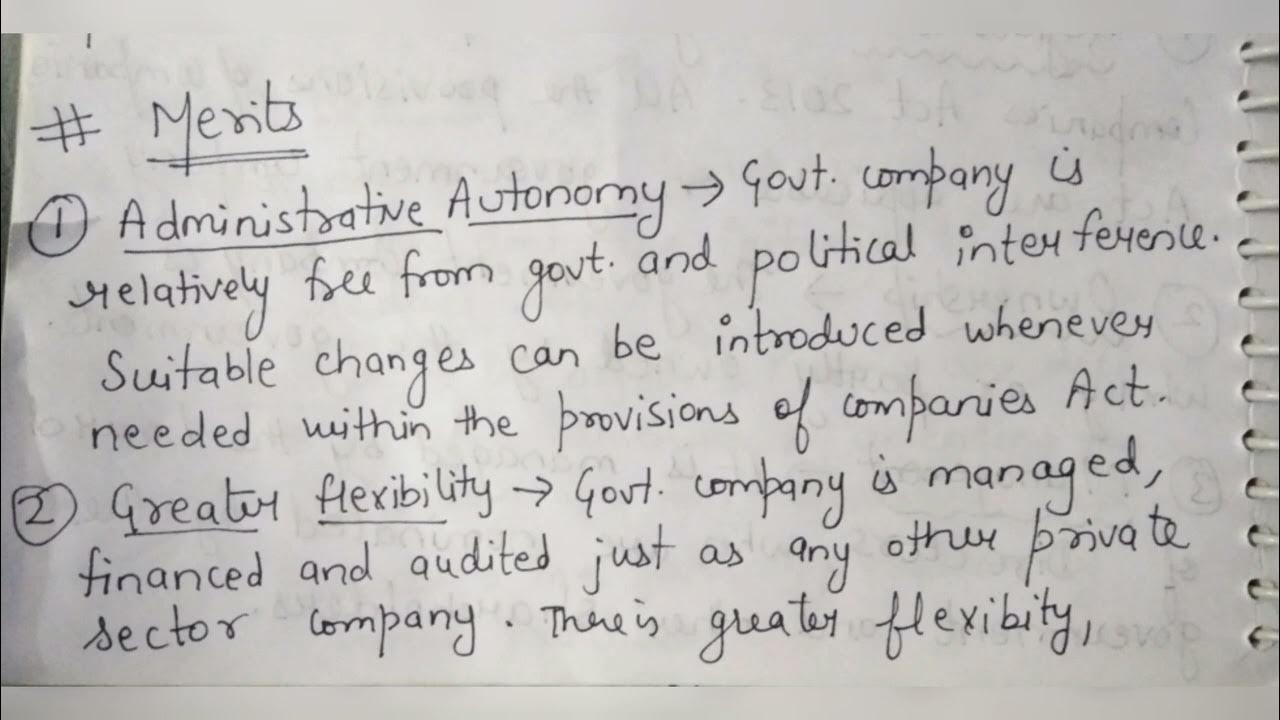 # Merits
① Administrative Autonomy → Govt. company is
relatively free from govt. and political interference.
Suitable changes can be introduced whenever
needed within the provisions of companies Act.
② Greater flexibility → Govt. company is managed,
financed and audited just as any other private
sector company. There is greater flexibity,